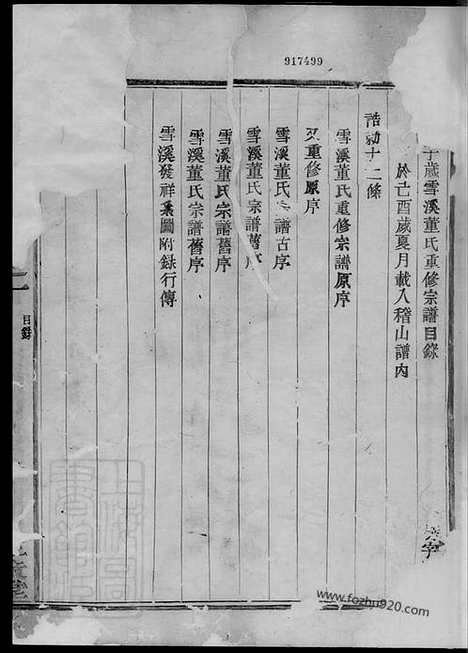 917499
子歲雪溪董氏重修宗譜目錄
於己酉歲夏月載入稽山譜內
誥勅十二條
雪溪董氏重修宗譜原序
又重修原序
雪溪董氏譜古序
雪溪董氏宗譜舊序
雪溪董氏宗譜舊序
雪溪董氏宗譜舊序
雪溪發祥基圖附錄行傳
目錄
www.fozhu920.com